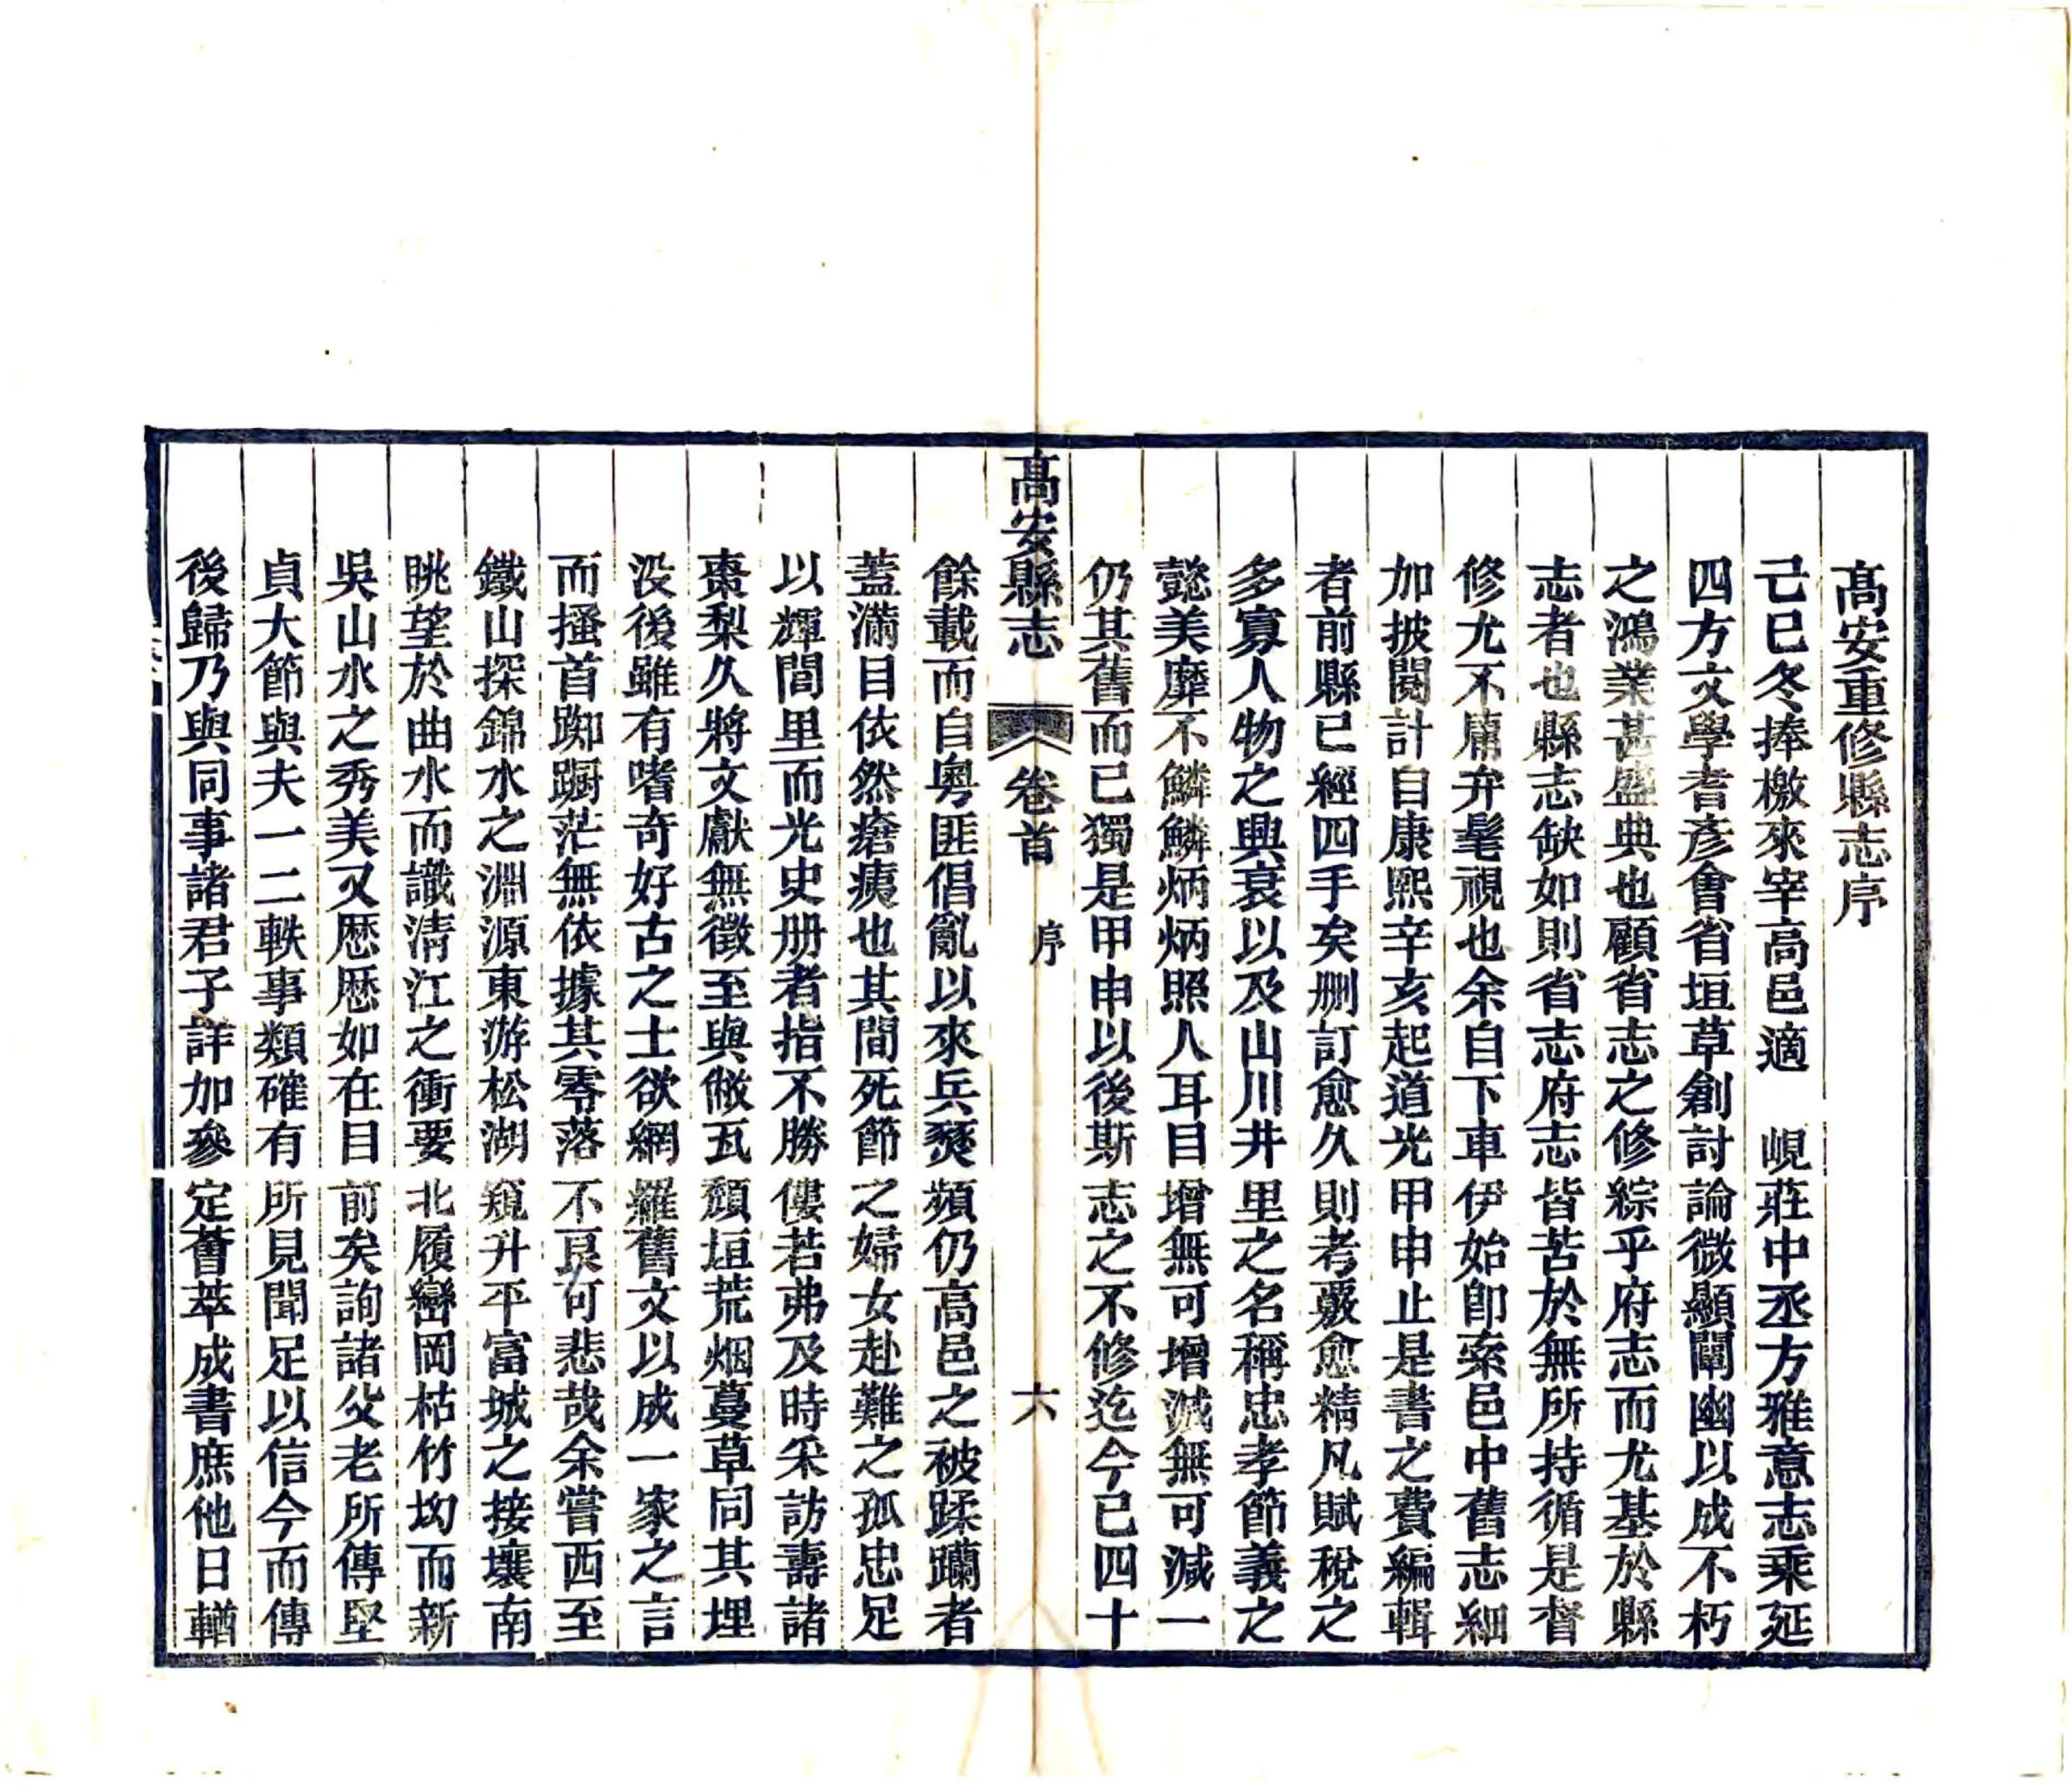 高安重修縣志序
己巳冬捧檄來宰高邑適　峴莊中丞方雅意志乘延
四方文學耆彥會省垣草創討論微顯闡幽以成不朽
之鴻業甚盛典也顧省志之修綜乎府志而尤基於縣
志者也縣志缺如則省志府志皆苦於無所持循是督
修尤不庸弁髦視也余自下車伊始卽索邑中舊志細
加披閱計自康熙辛亥起道光甲申止是書之費編輯
者前縣已經四手矣刪訂愈久則考覈愈精凡賦稅之
多寡人物之興衰以及山川井里之名稱忠孝節義之
懿美靡不鱗鱗炳炳照人耳目增無可增減無可減一
仍其舊而已獨是甲申以後斯志之不修迄今已四十
高安縣志　卷首　序　六
餘載而自粵匪倡亂以來兵燹頻仍高邑之被蹂躪者
蓋滿目依然瘡痍也其間死節之婦女赴難之孤忠足
以輝閭里而光史册者指不勝僂若弗及時采訪壽諸
棗梨久將文獻無徵至與敝瓦頹垣荒烟蔓草同其埋
没後雖有嗜奇好古之士欲網羅舊文以成一家之言
而搔首踟蹰茫無依據其零落不良可悲哉余嘗西至
鐵山探錦水之淵源東游松湖窺升平富城之接壤南
眺望於曲水而識清江之衝要北履巒岡枯竹㘭而新
吳山水之秀美又歷歷如在目前矣詢諸父老所傳堅
貞大節與夫一二軼事類確有所見聞足以信今而傳
後歸乃與同事諸君子詳加參定薈萃成書庶他日輶